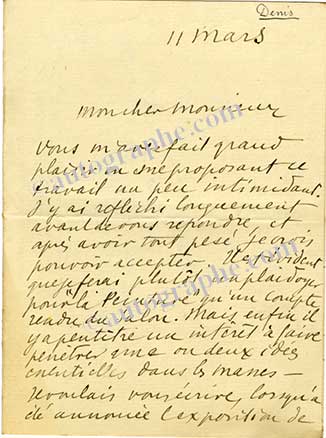 Denis
11 mars
mon cher monsieur
vous m'avez fait grand
plaisir en me proposant ce
travail un peu intimidant.
J'y ai réfléchi longuement
avant de vous répondre, et
après avoir tout pesé, je crois
pouvoir accepter. Il est évident
que je ferai plutôt un plaidoyer
pour la qu'un compte
rendu du Salon. Mais enfin il
y a peut être un intérêt à faire
pénétrer une ou deux idées
essentielles dans les masses –
Je voulais vous écrire, lorsqu'a
été annoncée l'exposition de
©autographe.com